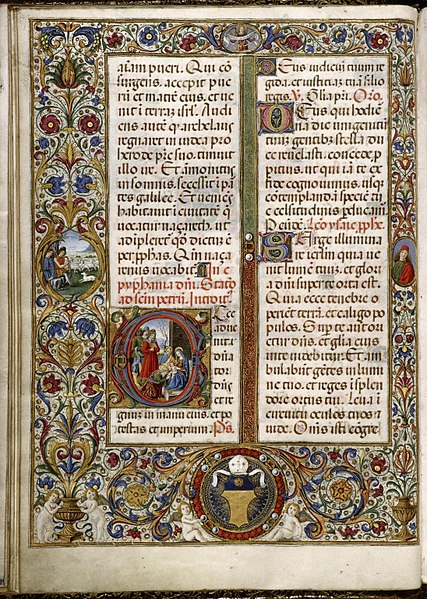 aīam pueri. Qui cō
surgens, accepit pue
rū et matrē eius, et ue
nit ī terrā isrl. Audi
ens autē ꝙ archelaus
regnaret in iudea pro
herode pr̄e suo, timuit
illo ire. Et āmonitus
in somnis, secessit ī p̄a
tes galilee. Et ueniēs
habitauit ī ciuitate q̄
uocatur nazareth. ut
adīpleret̄ qd̄ dictū ē
per pphās. Qm̄ naza
renus uocabit̄. In e
pyphania dn̄i. Statō
ad scm̄ petrū. Introit.
Ecce
adue
nit
dn̄a
tor
dn̄s
et re
gnū in manu eius, et po
testas et imperium. Ps.
Deus iudiciū tuum re
gi da. et iustitiā tuā filio
regis. V. Glia pri. Oro.
Deus qui hodier
na die unigenitū
tuū, gentibus stella du
ce reuelasti. concede p
pitius. ut qui iā te ex
fide cognouimus. usq
contemplandā speciē tu
e celsitudinis perducam
Per eūdē. Lco ysaie pphe.
Surge illumina
re ierlm quia ue
nit lumē tuum. et glori
a dn̄i super te orta est.
Quia ecce tenebre o
perient terrā. et caligo po
pulos. Sup te aūt ori
etur dn̄s. et glia eius
in te uidebitur. Et am
bulabūt gētes in lumi
ne tuo. et reges ī splen
dore ortus tui. Leua ī
circuitu oculos tuos et
uide. Om̄s isti cōgre